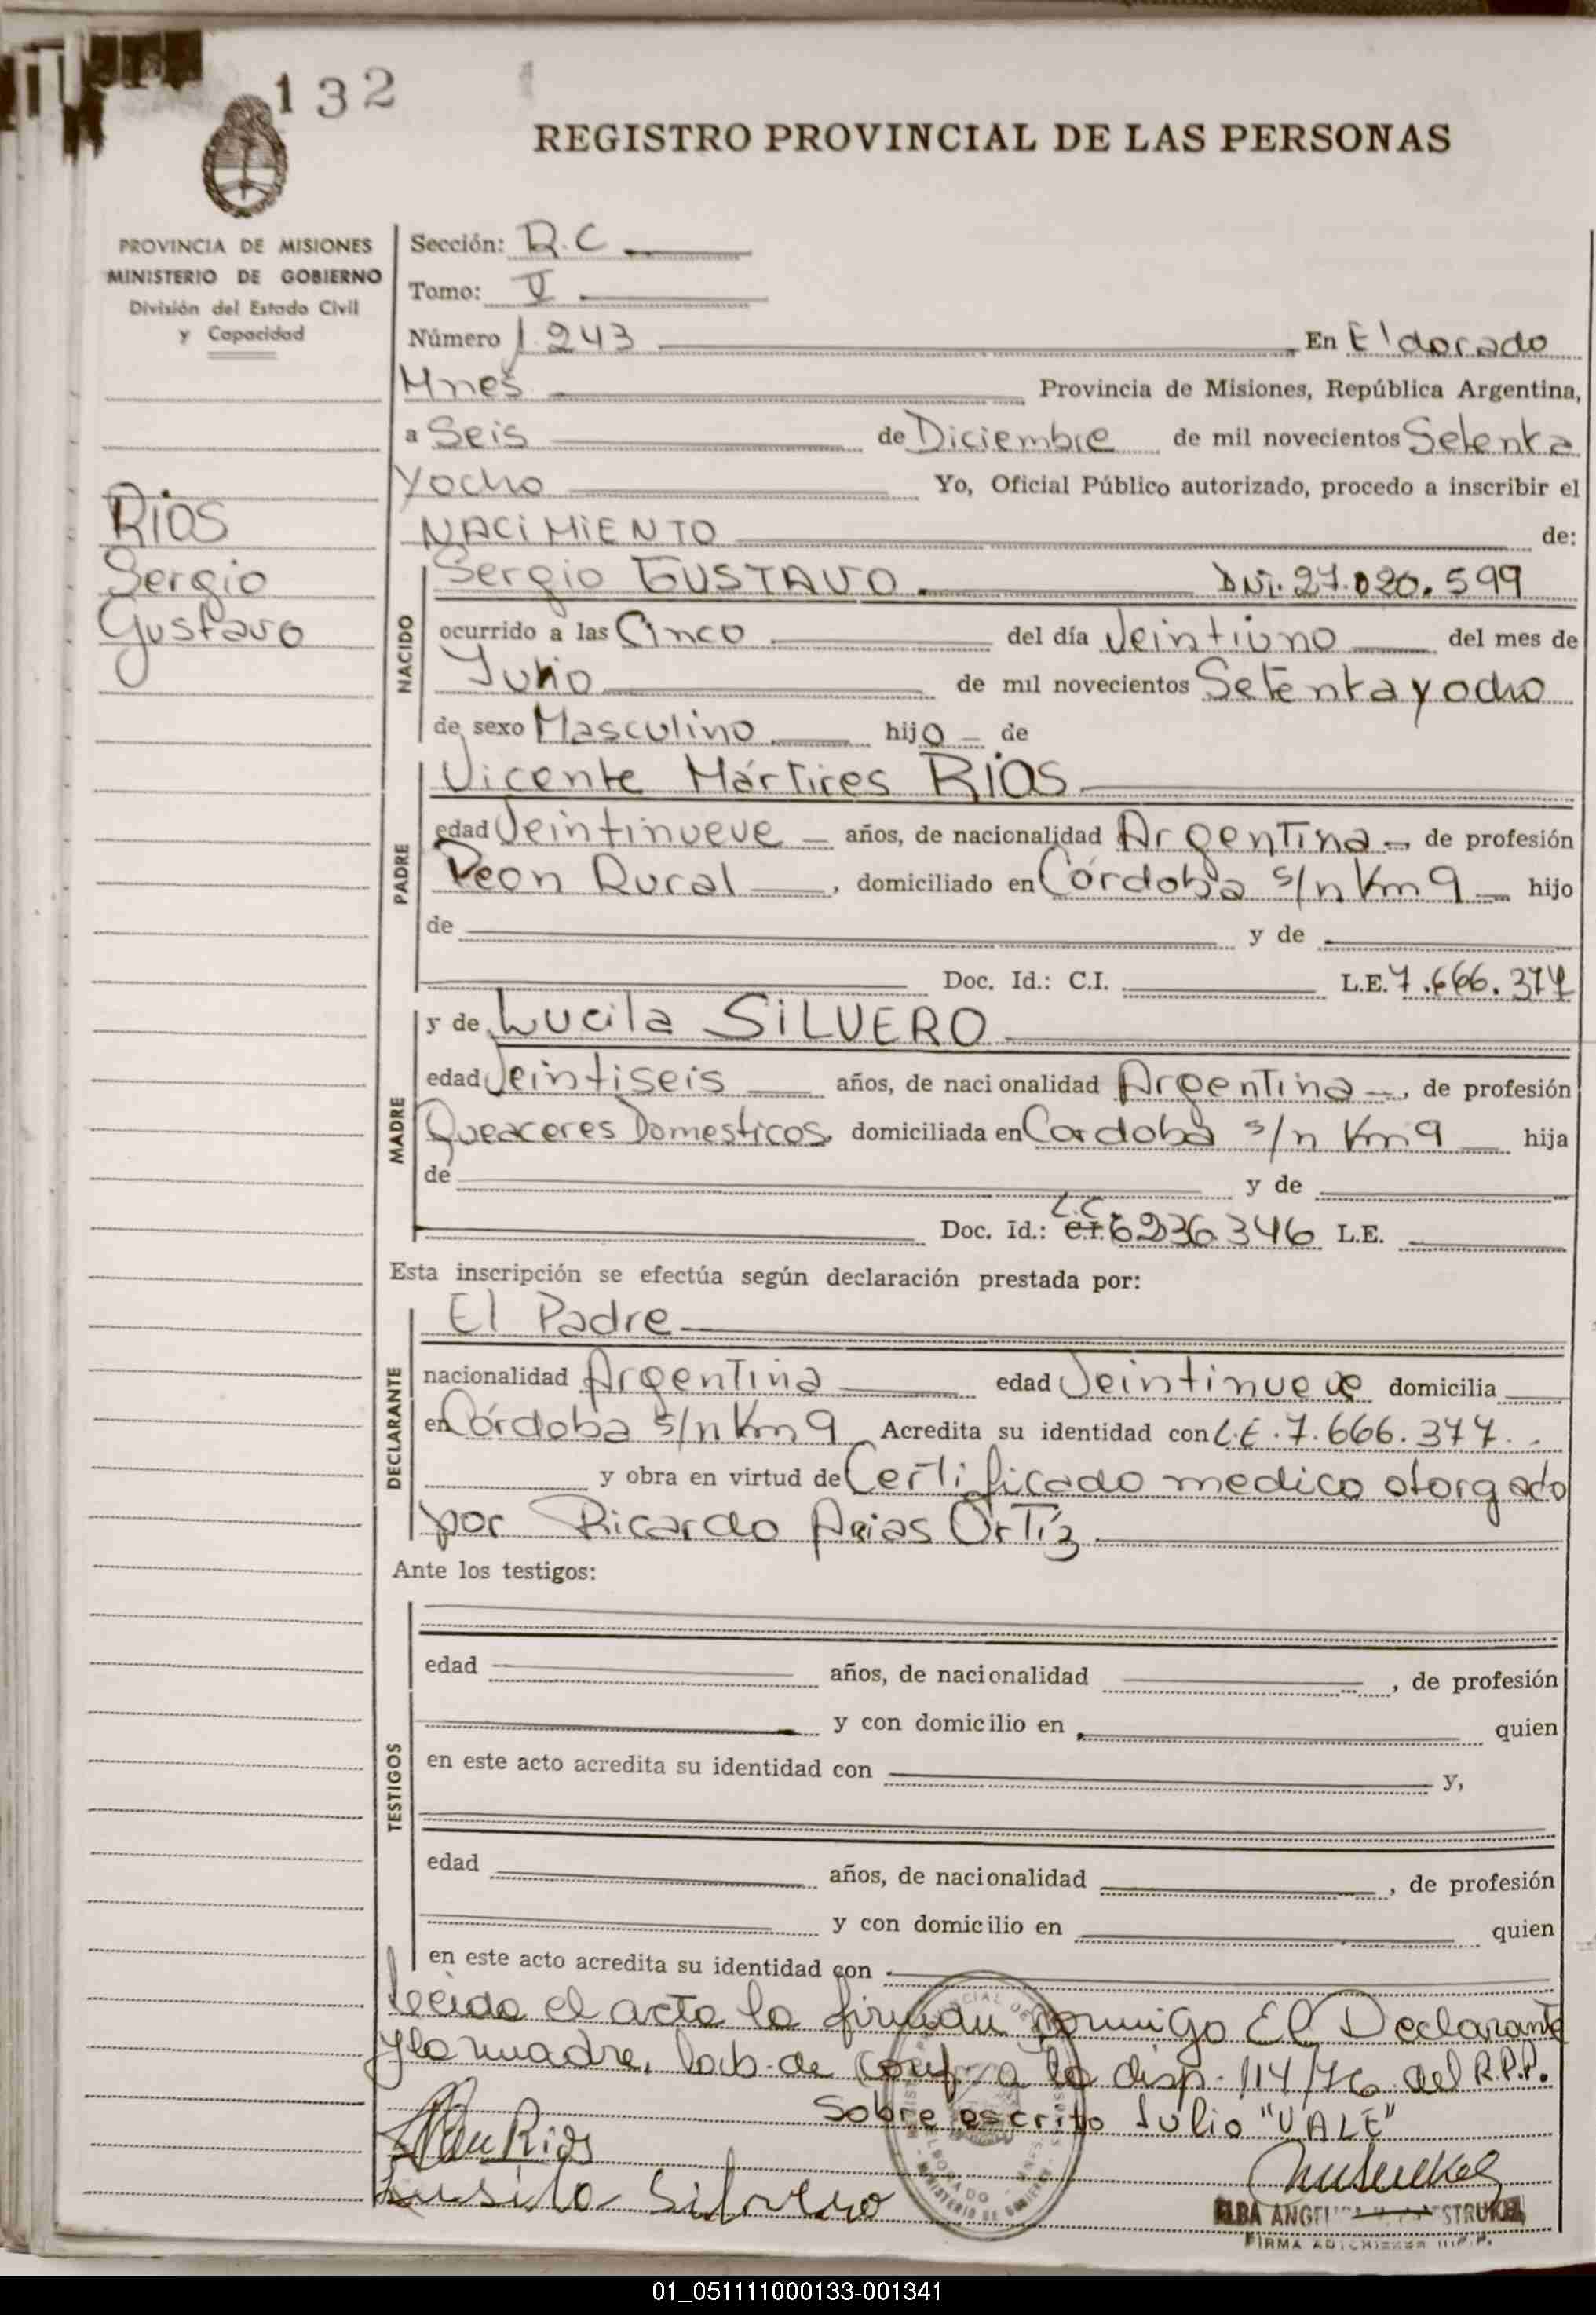 132
REGISTRO PROVINCIAL DE LAS PERSONAS
PROVINCIA DE MISIONES
MINISTERIO DE GOBIERNO
División del Estado Civil
y Capacidad
Rios
Sergio
Gustavo
Sección: R.C
Tomo: V
Número 1.243 En Eldorado
Mnes Provincia de Misiones, República Argentina,
a Seis de Diciembre de mil novecientos Setenta
y ocho Yo, Oficial Público autorizado, procedo a inscribir el
NACIMIENTO de:
NACIDO
Sergio GUSTAVO DNi. 27.020.599
ocurrido a las Cinco del día Veintiuno del mes de
Julio de mil novecientos Setenta y ocho
de sexo Masculino hijo de
PADRE
Vicente Mártires RIOS
edad Veintinueve años, de nacionalidad Argentina, de profesión
Peon Rural, domiciliado en Córdoba s/n Km 9 hijo
de y de
Doc. Id.: C.I. L.E. 7.666.377
MADRE
y de Lucila SILVERO
edad Veintiseis años, de nacionalidad Argentina, de profesión
Queaceres Domesticos, domiciliada en Cordoba s/n Km 9 hija
de y de
L.C.
Doc. Id.: C.I. 6236346 L.E.
Esta inscripción se efectúa según declaración prestada por:
DECLARANTE
El Padre
nacionalidad Argentina edad Veintinueve domicilia
en Córdoba s/n Km 9 Acredita su identidad con L.E. 7.666.377.
y obra en virtud de Certificado medico otorgado
por Ricardo Arias Ortíz
Ante los testigos:
TESTIGOS
edad años, de nacionalidad , de profesión
y con domicilio en quien
en este acto acredita su identidad con y,
edad años, de nacionalidad , de profesión
y con domicilio en quien
en este acto acredita su identidad con
Leida el acta la firman conmigo El Declarante
y la madre, lab. de conf. a la disp. 114/76 del R.P.P.
Sobre escrito Julio "VALE"
Rios
Lusila Silvero
ELBA STRUKEL
FIRMA
01_051111000133-001341